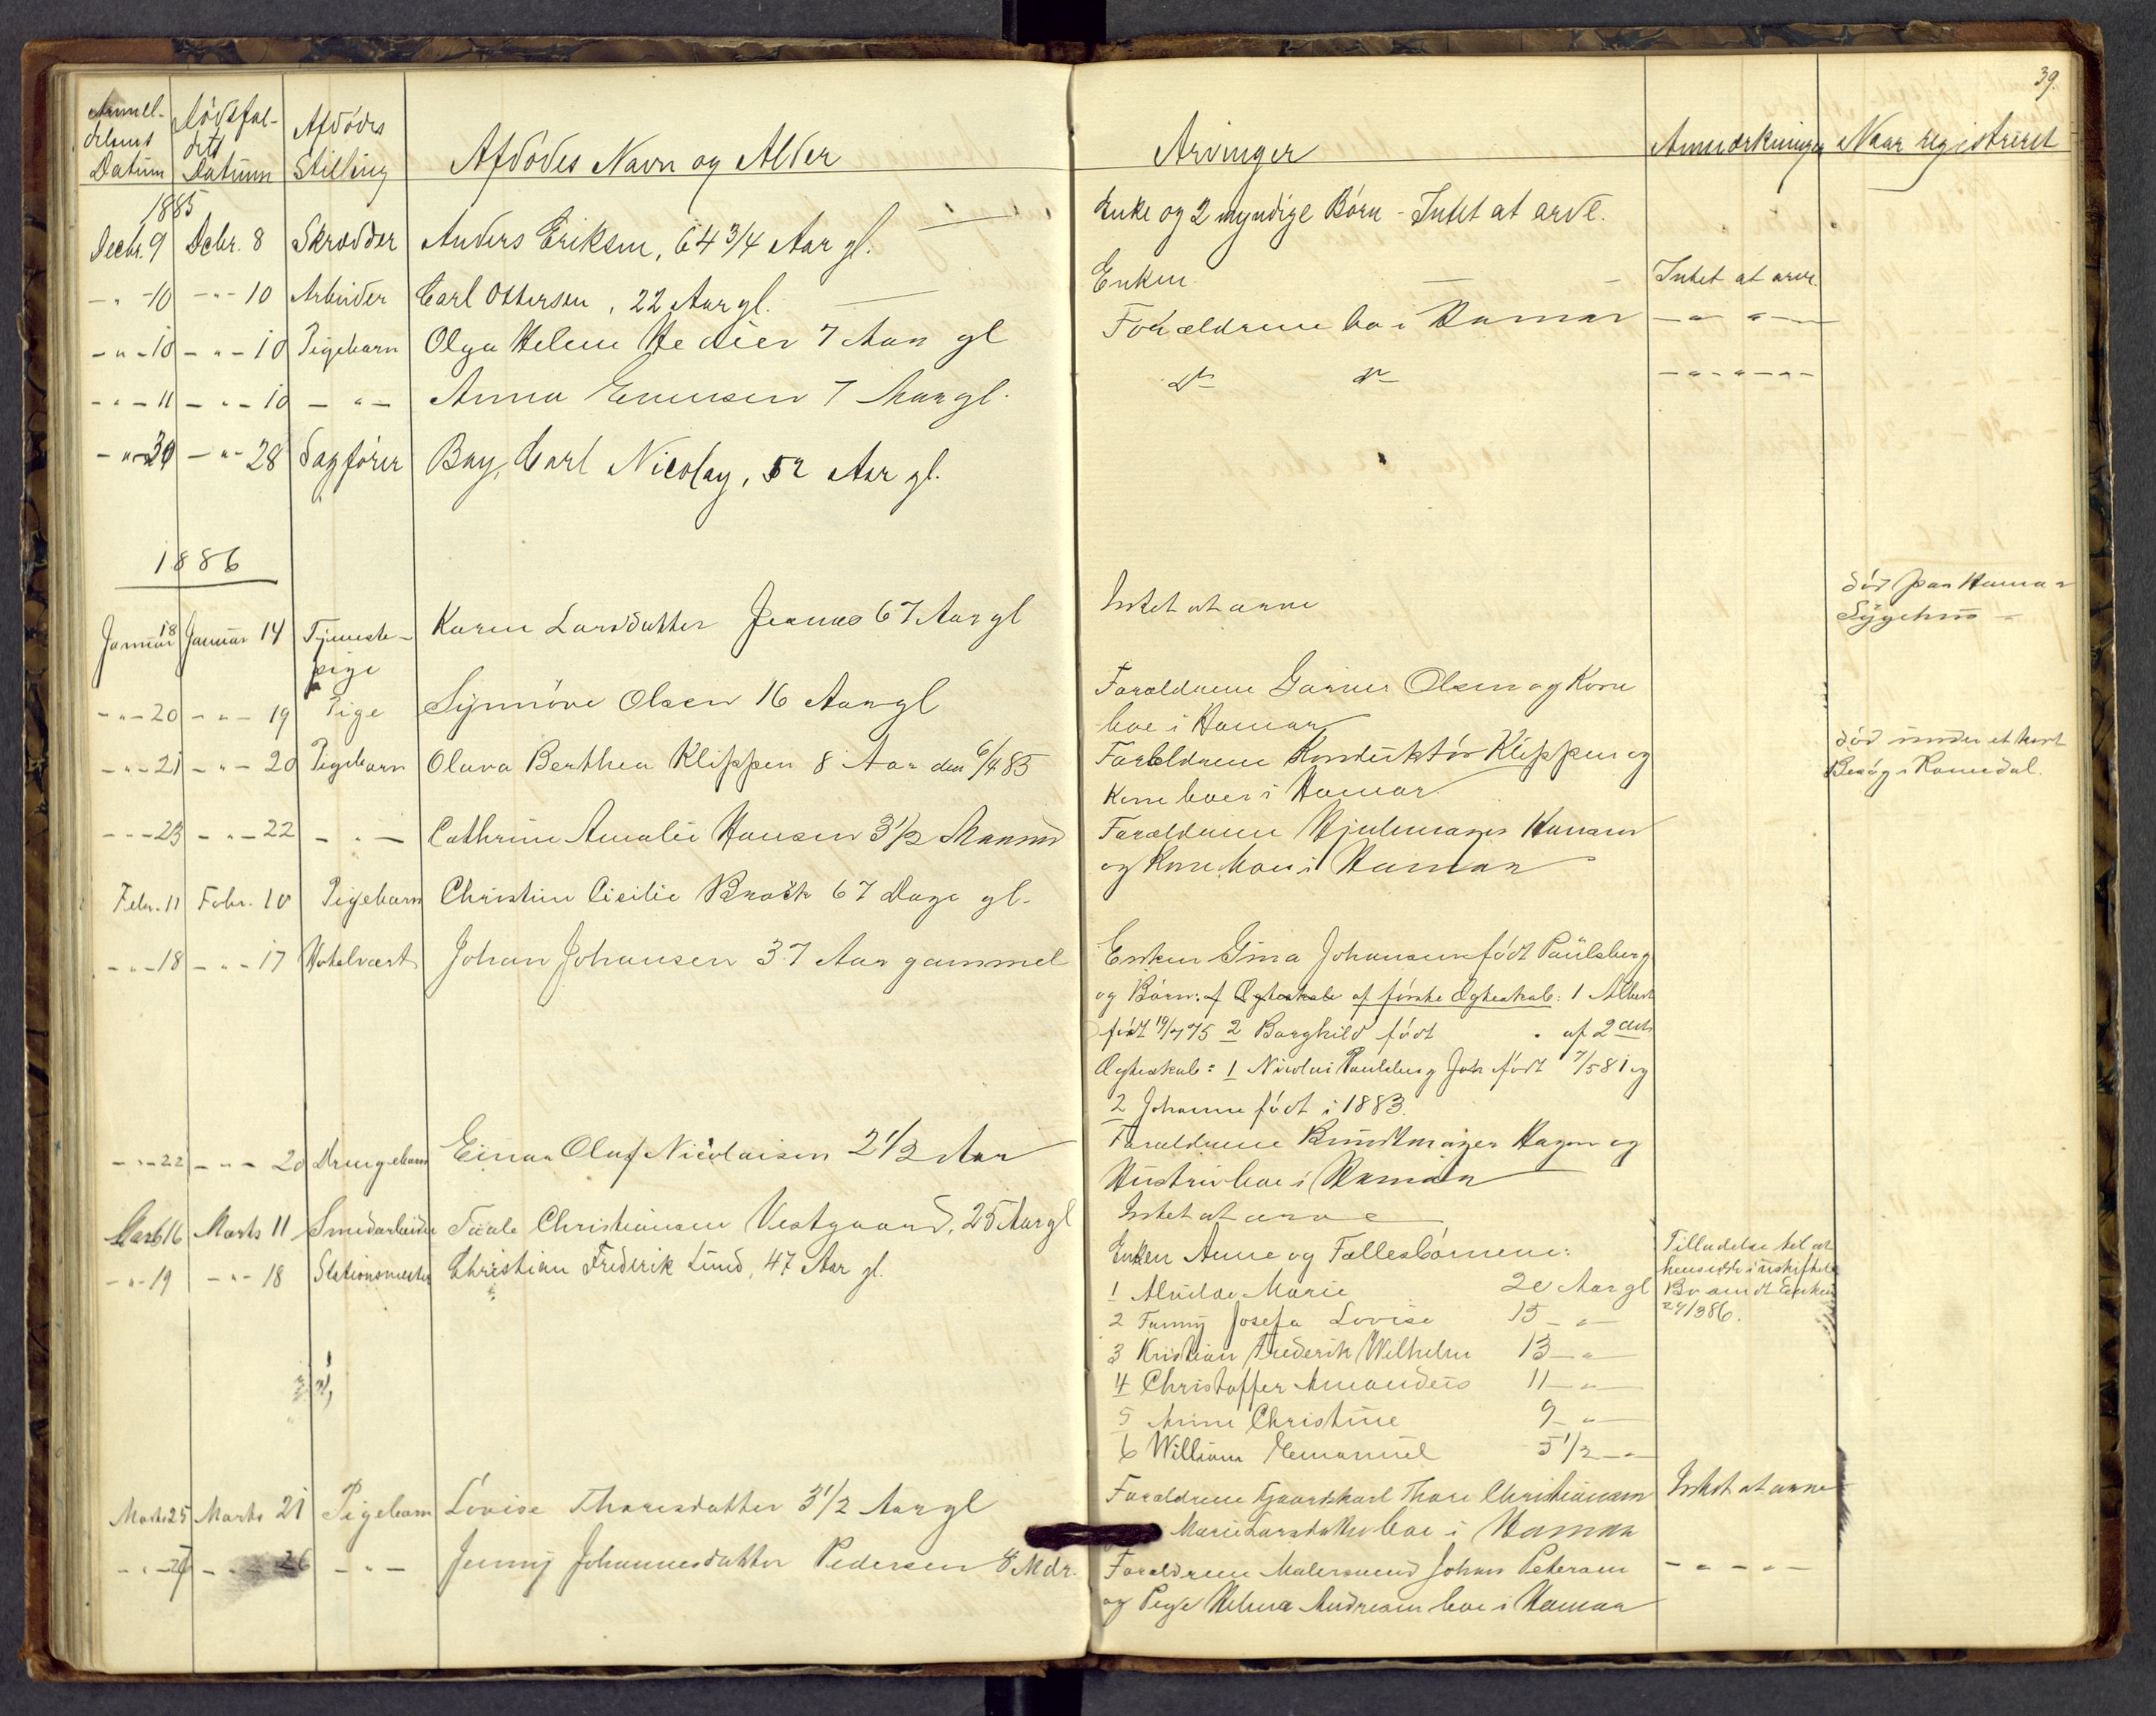 39.
Anmel-
delsens
Datum
Dødsfal-
dets
Datum
Afdødes
Stilling
Afdødes Navn og Alder
Arvinger
Anmærkninger
Naar registreret
1885
Decbr. 9 Dcbr. 8 Skrædder Anders Eriksen, 64 3/4 Aar gl. — Enke og 2 myndige Børn - Intet at arve.
- " - 10 - " - 10 Arbeider Carl Ottersen, 22 Aar gl. — Enken — - Intet at arve
- " - 10 - " - 10 Pigebarn Olga Helene 7 Aar gl Forældrene bo i Hamar - " - " -
- " - 11 - " - 10 - " - Anna Evensen 7 Aar gl. do do - " - " - " -
- " - 30 - " - 28 Sagfører Bay, Carl Nicolay, 52 Aar gl.
1886
Januar 18 Januar 14 Tjeneste- Karen Larsdatter 67 Aar gl Intet at arve død paa Hamar
pige Sygehus -
- " - 20 - " - 19 Pige Synnöve Olsen 16 Aar gl Forældrene Olsen og Kone
boe i Hamar
- " - 21 - " - 20 Pigebarn Olava Berthea Klippen 8 Aar den 6/4 85 Forældrene Konduktör Klippen og død under et kort
Kone boer i Hamar Besøg i Romedal.
- " - 23 - " - 22 - " - Cathrine Amalie Hansen 3 1/2 Maaned Forældrene Hjulmager Hansen
og Kone boer i Hamar
Febr. 11 Febr. 10 Pigebarn Christine Cicilie Brock 67 Dage gl.
- " - 18 - " - 17 Hotelvært Johan Johansen 37 Aar gammel Enken Gina Johansen født Paulsberg
og Børn: af Ægteskab af første Ægteskab: 1 Albert
født 19/7 75 2 Borghild født . af 2det
Ægteskab: 1 Nicolai Paulsberg Joh født 7/5 81 og
2 Johanne født i 1883.
- " - 22 - " - 20 Drengebarn Einar Olaf Nicolaisen 2 1/2 Aar Forældrene Bundtmager Hagen og
Hustru boe i Hamar
Marts 16 Marts 11 Smedarbeider Christiansen Vestgaard, 25 Aar gl Intet at arve
- " - 19 - " - 18 Stationsmester Christian Frederik Lund, 47 Aar gl. Enken Anne og Fællesbørnene: Tilladelse til at
hensidde i uskiftet
1 Alvilde Marie 20 Aar gl Bo Enken
2 Fanny Josefa Lovise 15 - " - 24/3 86.
3 Kristian Frederik Wilhelm 13 - " -
4 Christoffer Amandus 11 - " -
5 Anne Christine 9 - " -
6 William Emanuel 5 1/2 - " -
Marts 25 Marts 21 Pigebarn Lovise Thoresdatter 3 1/2 Aar gl Forældrene Gaardskarl Thore Christiansen Intet at arve
Marie Larsdatter boe i Hamar
- " - 27 - " - 26 - " - Jenny Johannesdatter Pedersen 8 Mdr. Forældrene Malersvend Johan Petersen - " - " -
og Pige Helene Andresen boe i Hamar